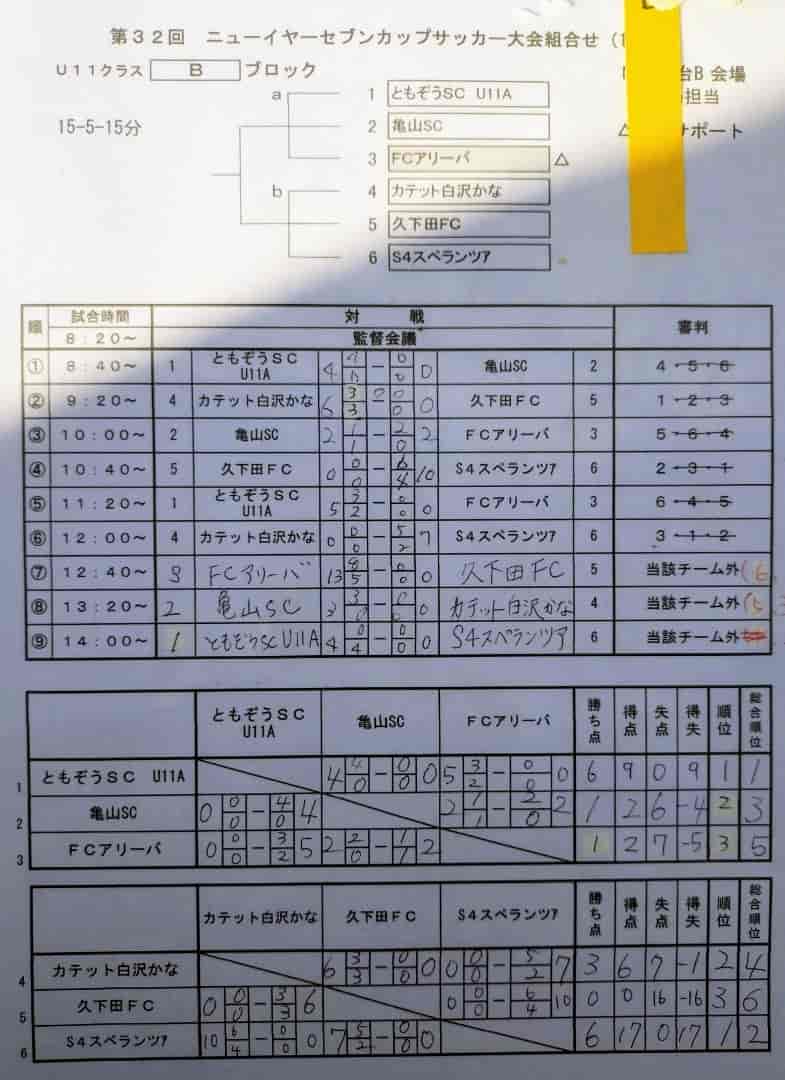 第32回 ニューイヤーセブンカップサッカー大会組合せ
U11クラス B ブロック
台B 会場
担当
15-5-15分
△ サポート
a
1 ともぞうSC U11A
2 亀山SC
3 FCアリーバ △
b
4 カテット白沢かな
5 久下田FC
6 S4スペランツア
順 試合時間 対 戦 審判
8:20～ 監督会議
① 8:40～ 1 ともぞうSC U11A 4 4 0 － 0 0 0 亀山SC 2 4・5・6
② 9:20～ 4 カテット白沢かな 6 3 3 － 0 0 0 久下田FC 5 1・2・3
③ 10:00～ 2 亀山SC 2 1 1 － 2 0 2 FCアリーバ 3 5・6・4
④ 10:40～ 5 久下田FC 0 0 0 － 6 4 10 S4スペランツア 6 2・3・1
⑤ 11:20～ 1 ともぞうSC U11A 5 3 2 － 0 0 0 FCアリーバ 3 6・4・5
⑥ 12:00～ 4 カテット白沢かな 0 0 0 － 5 2 7 S4スペランツア 6 3・1・2
⑦ 12:40～ 3 FCアリーバ 13 8 5 － 0 0 0 久下田FC 5 当該チーム外
⑧ 13:20～ 2 亀山SC 3 3 0 － 0 0 0 カテット白沢かな 4 当該チーム外
⑨ 14:00～ 1 ともぞうSC U11A 4 0 4 － 0 0 0 S4スペランツア 6 当該チーム外
ともぞうSC U11A 亀山SC FCアリーバ 勝ち点 得点 失点 得失 順位 総合順位
1 ともぞうSC U11A 4 4 0 － 0 0 0 5 3 2 － 0 0 0 6 9 0 9 1 1
2 亀山SC 0 0 0 － 4 0 4 2 1 1 － 2 0 2 1 2 6 -4 2 3
3 FCアリーバ 0 0 0 － 3 2 5 2 2 0 － 1 1 2 1 2 7 -5 3 5
カテット白沢かな 久下田FC S4スペランツア 勝ち点 得点 失点 得失 順位 総合順位
4 カテット白沢かな 6 3 3 － 0 0 0 0 0 0 － 5 2 7 3 6 7 -1 2 4
5 久下田FC 0 0 0 － 3 3 6 0 0 0 － 6 4 10 0 0 16 -16 3 6
6 S4スペランツア 10 6 4 － 0 0 0 7 5 2 － 0 0 0 6 17 0 17 1 2